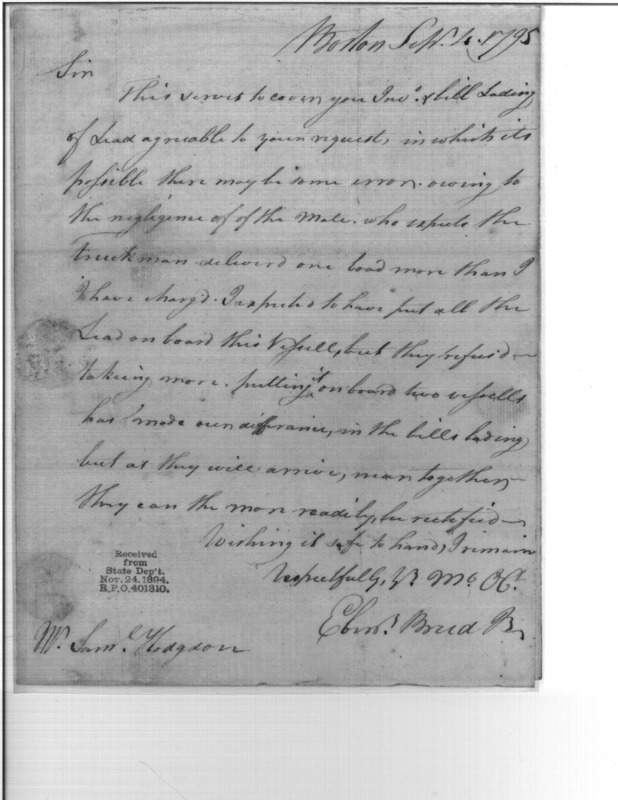 Boston Sept. 4. 1795
Sir
This serves to cover you Invo. & bill Lading
of Lead agreable to your request, in which its
possible there may be some error. owing to
the negligence of of the Mate. who expects the
Truckman deliverd one load more than I
have chargd. I expected to have put all the
Lead on board this Vessell, but they refused
taking more. putting it on board two vessells
has made our differance, in the bills lading
but as they will arrive, near together,
they can the more readily, be rectified
Wishing it safe to hand, I remain
respectfully, Yr. Mo. Ob.
Ebenr. Breed
Mr. Saml. Hodgdon
Received
from
State Dep't.
Nov. 24. 1894.
R.P.O. 401310.